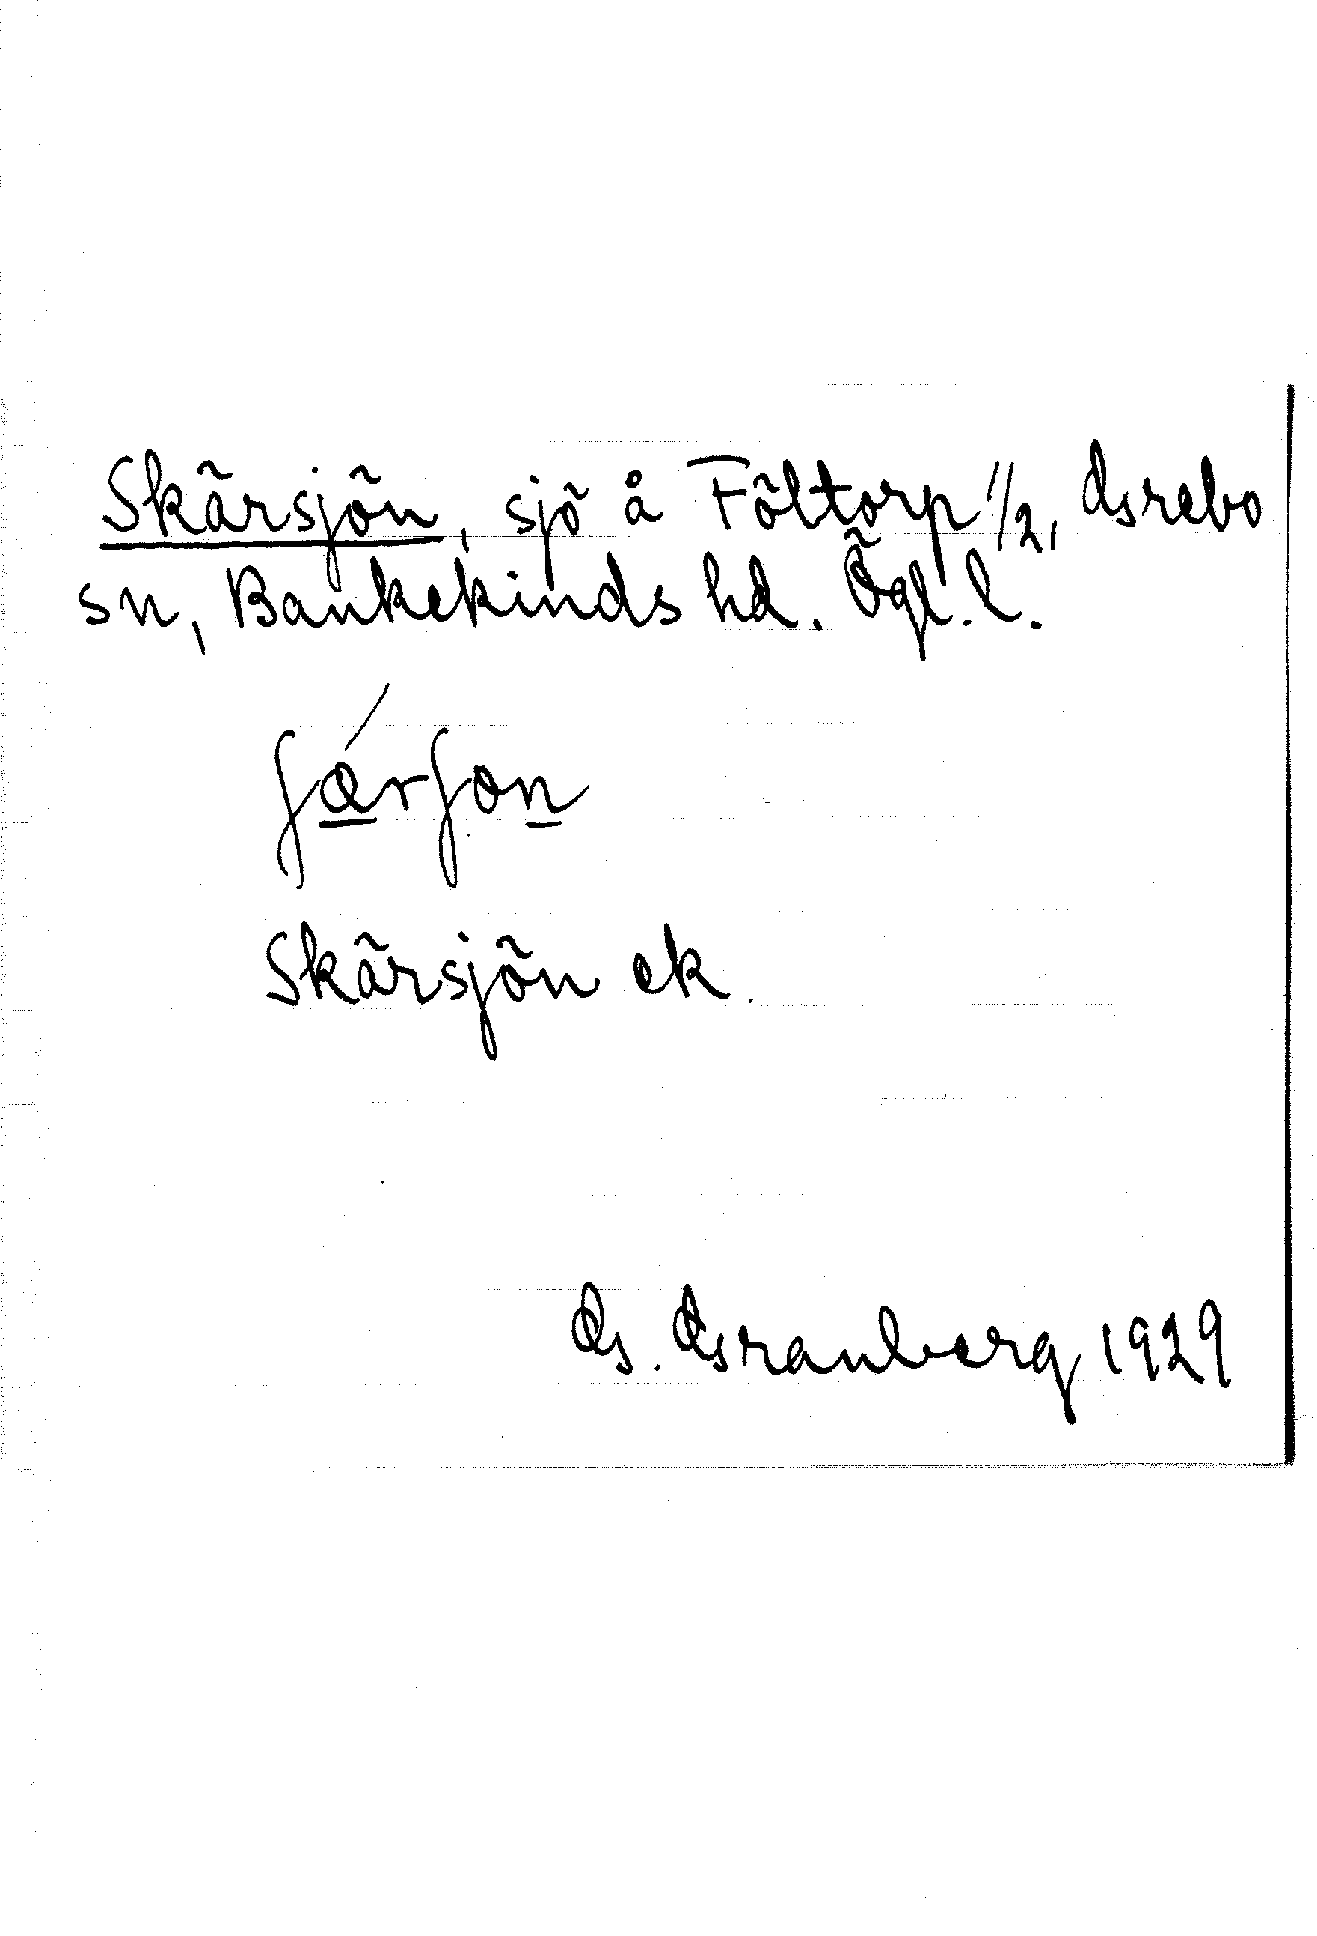 Skärsjön, sjö å Föltorp 1/2, Grebo
sn, Bankekinds hd. Ögl. l.
Skärsjön ek.
G. Granberg 1929